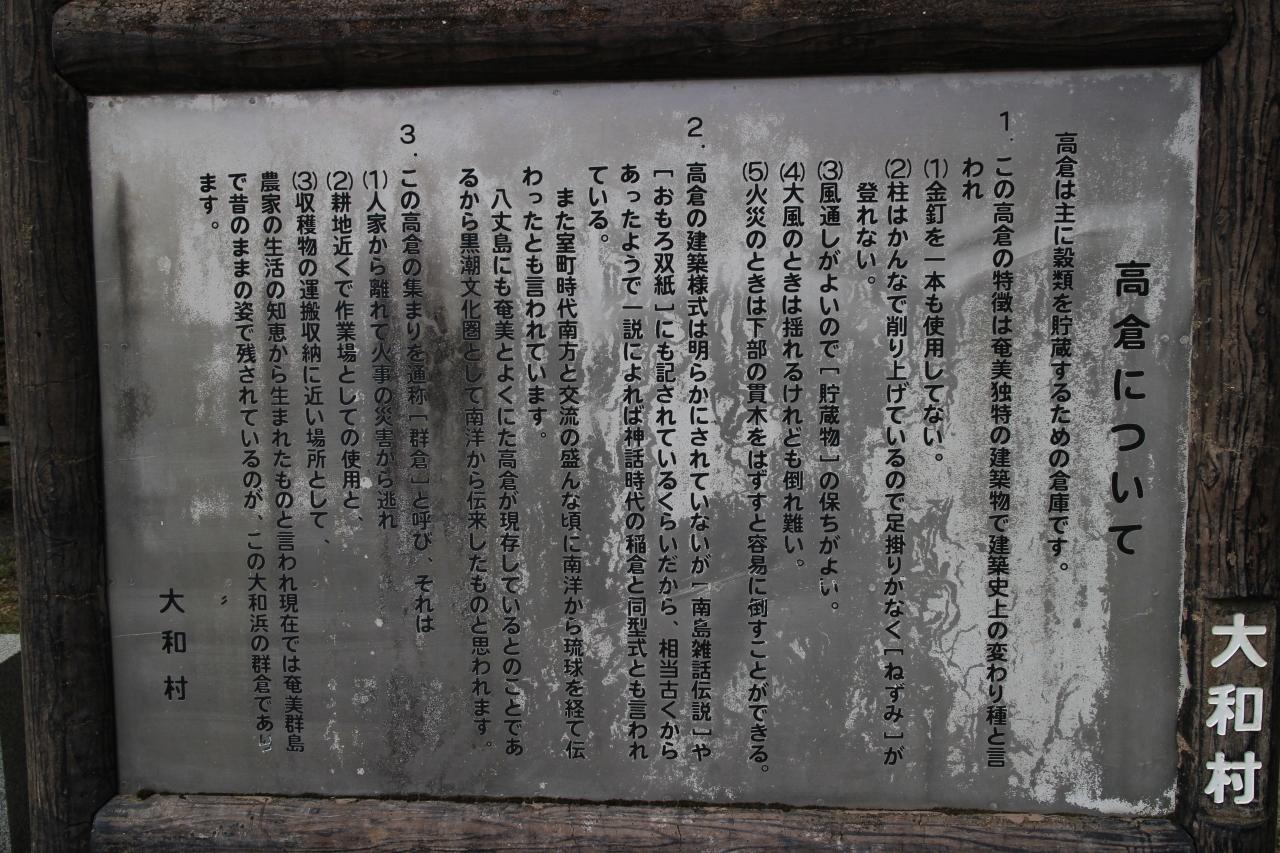 高倉について
高倉は主に穀類を貯蔵するための倉庫です。
1．この高倉の特徴は奄美独特の建築物で建築史上の変わり種と言
われ
⑴金釘を一本も使用してない。
⑵柱はかんなで削り上げているので足掛りかなく［ねずみ］が
登れない。
⑶風通しがよいので［貯蔵物］の保ちがよい。
⑷大風のときは揺れるけれども倒れ難い。
⑸火災のときは下部の貫木をはずすと容易に倒すことができる。
2．高倉の建築様式は明らかにされていないが［南島雑話伝説］や
［おもろ双紙］にも記されているくらいだから、相当古くから
あったようで一説によれば神話時代の稲倉と同型式とも言われ
ている。
また室町時代南方と交流の盛んな頃に南洋から琉球を経て伝
わったとも言われています。
八丈島にも奄美とよくにた高倉が現存しているとのことであ
るから黒潮文化圏として南洋から伝来したものと思われます。
3．この高倉の集まりを通称［群倉］と呼び、それは
⑴人家から離れて火事の災害から逃れ
⑵耕地近くで作業場としての使用と、
⑶収穫物の運搬収納に近い場所として、
農家の生活の知恵から生まれたものと言われ現在では奄美群島
で昔のままの姿で残されているのが、この大和浜の群倉であり
ます。
大和村
大和村